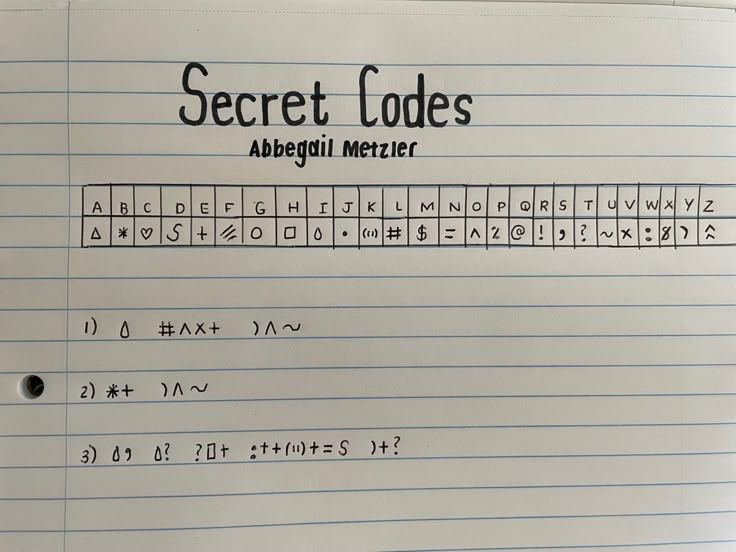 Secret Codes
Abbegail Metzler
A B C D E F G H I J K L M N O P Q R S T U V W X Y Z
△ * ♡ S + ⫽ ○ □ 💧 • (ıı) # $ = ^ % @ ! , ? ~ x : 8 ) ︽
1) 💧 #^x+ )^~
2) *+ )^~
3) 💧, 💧? ?□+ :++(ıı)+=S )+?